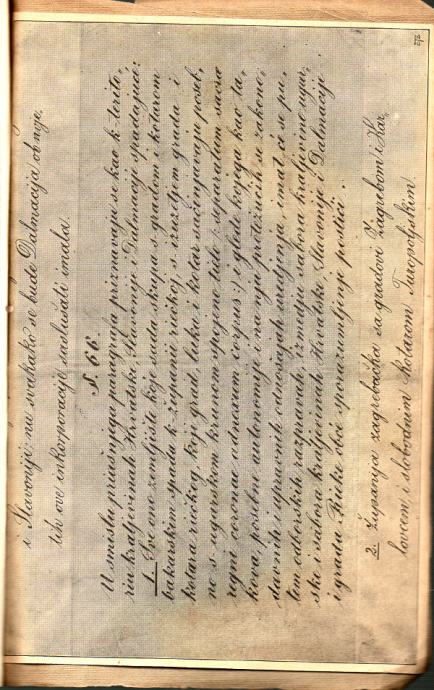 i Slavoniji; nu svakako se bude Dalmacija ob noje
tih ove inkorporacije saslušati imala.
§. 66.
U smislu prijašnjega paragrafa priznavaju se kao k terito-
riu kraljevinah Hrvatske, Slavonije i Dalmacije spadajuća:
1. Sve ono zemljište, koje sada skupa s gradom i kotarom
bakarskim spada k županii riečkoj, s izuzetjem grada i
kotara riečkog, koji grad, luka i kotar sačinjavaju poseb-
no s ugarskom krunom spojeno tielo (: separatum sacrae
regni coronae adnexum corpus :) i gledé kojega kao ta-
kova, posebne autonomije i na nju protežućih se zakono-
davnih i upravnih odnošajah uredjenja, imat će se pu-
tem odborskih razpravah, izmedju sabora kraljevine ugar-
ske i sabora kraljevinah Hrvatske, Slavonije i Dalmacije
i grada Rieke obće sporazumljenje postići.
2. Županija zagrebačka sa gradovi Zagrebom i Kar-
lovcem, i slobodnim kotarom Turopoljskim.